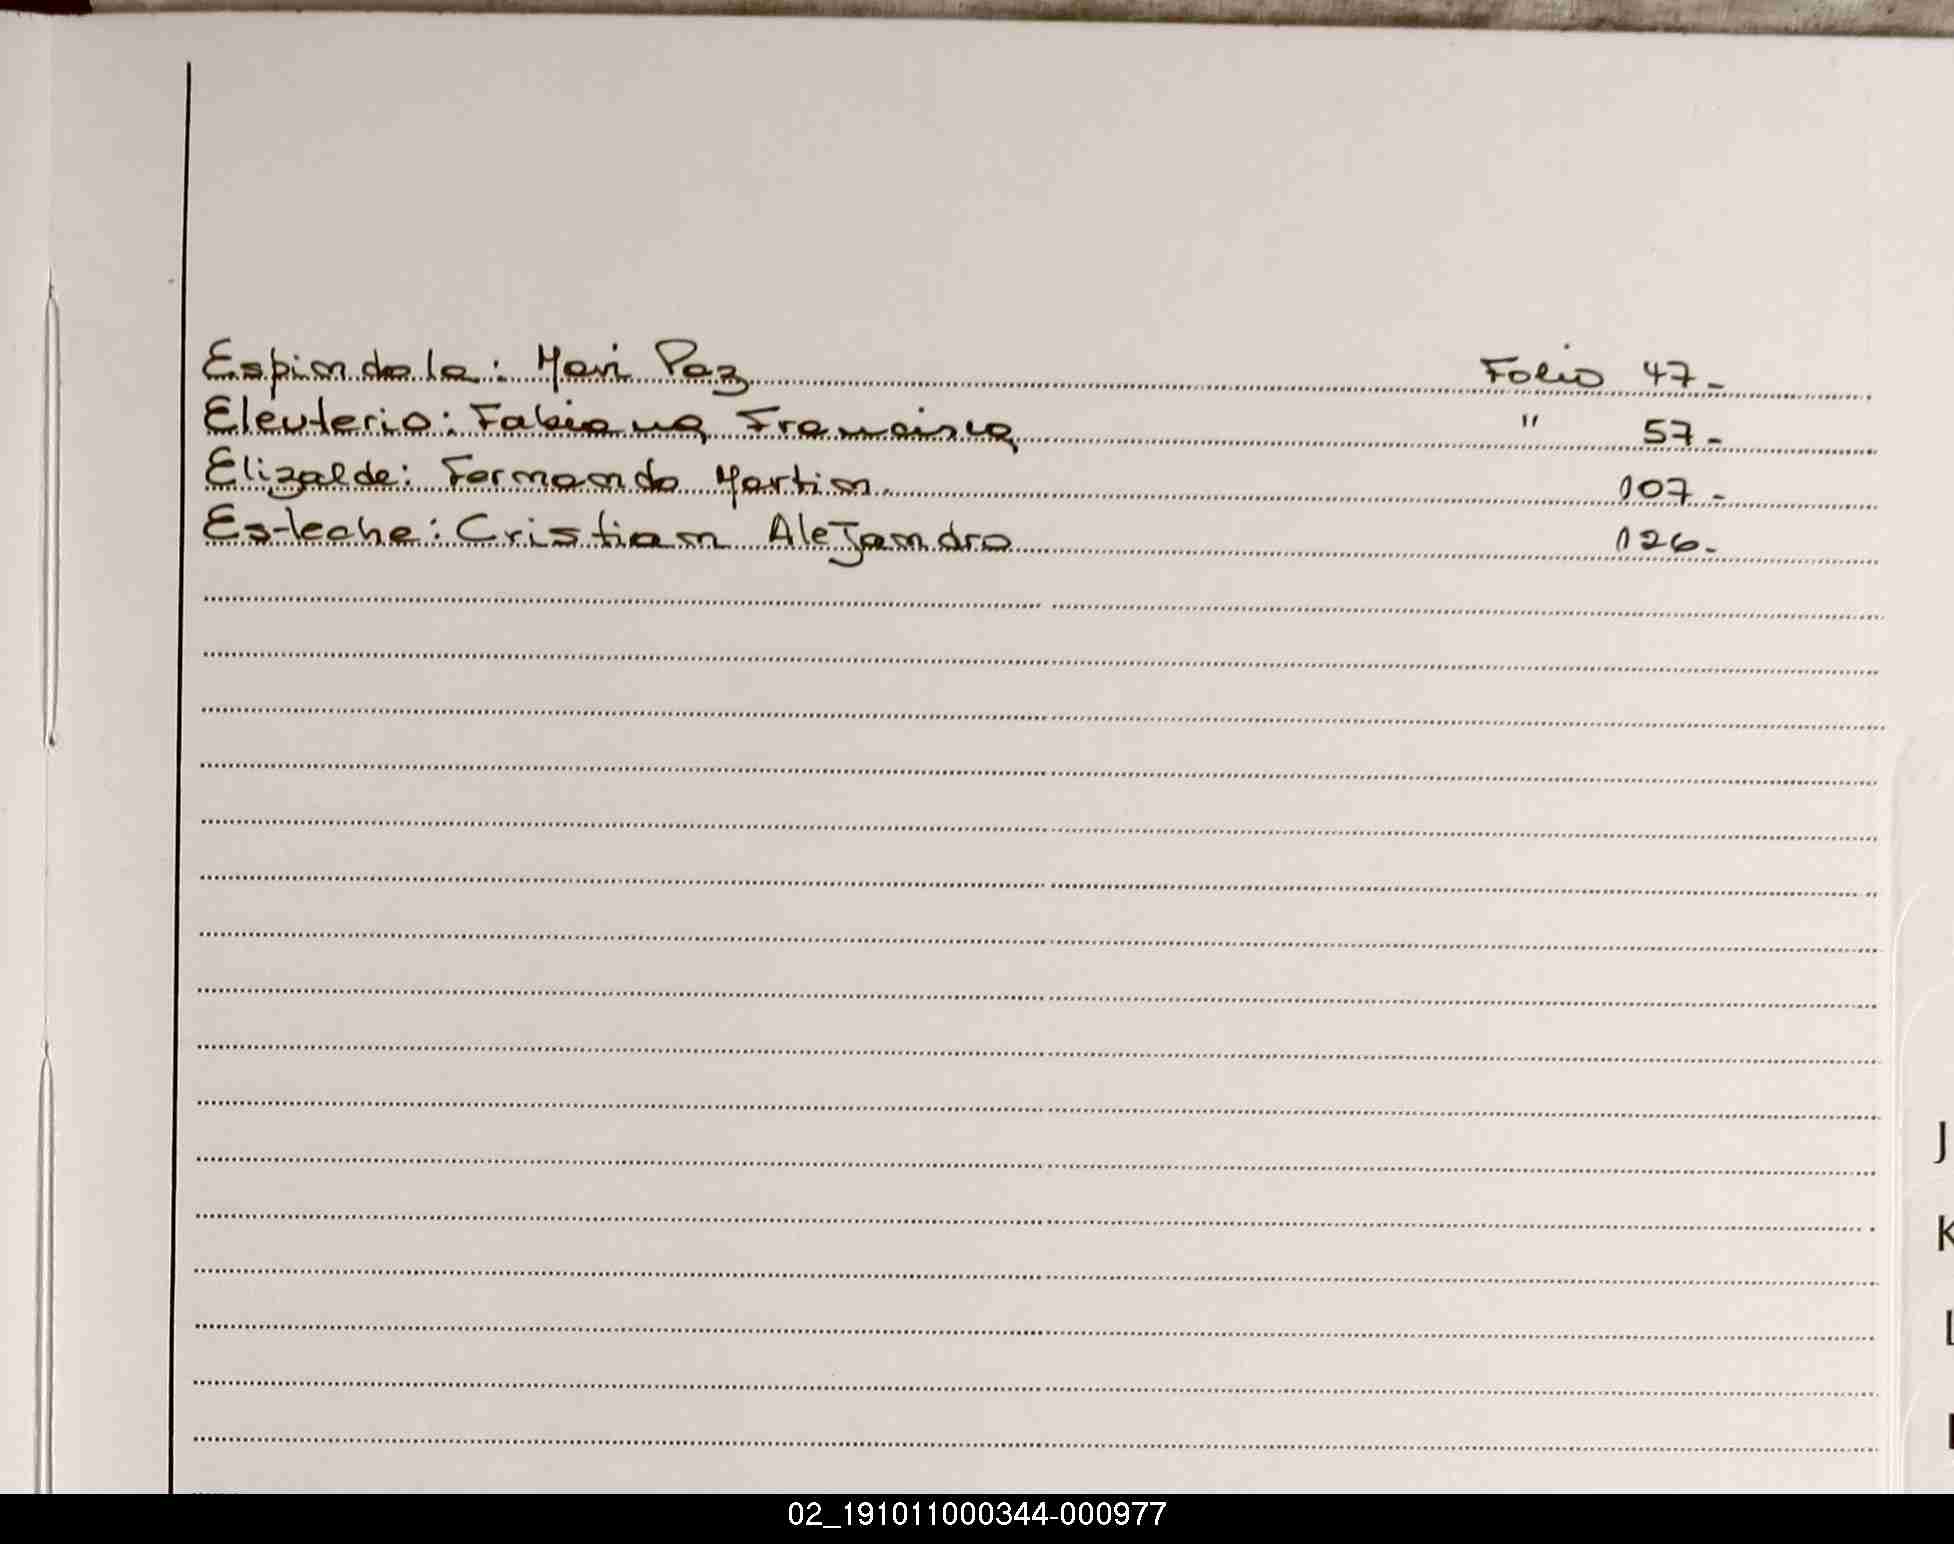 Espindola: Mari Paz Folio 47-
Eleuterio: Fabiana Francisca " 57-
Elizalde: Fernando Martin. 107-
Esteche: Cristian Alejandro 126-
J
K
L
02_191011000344-000977